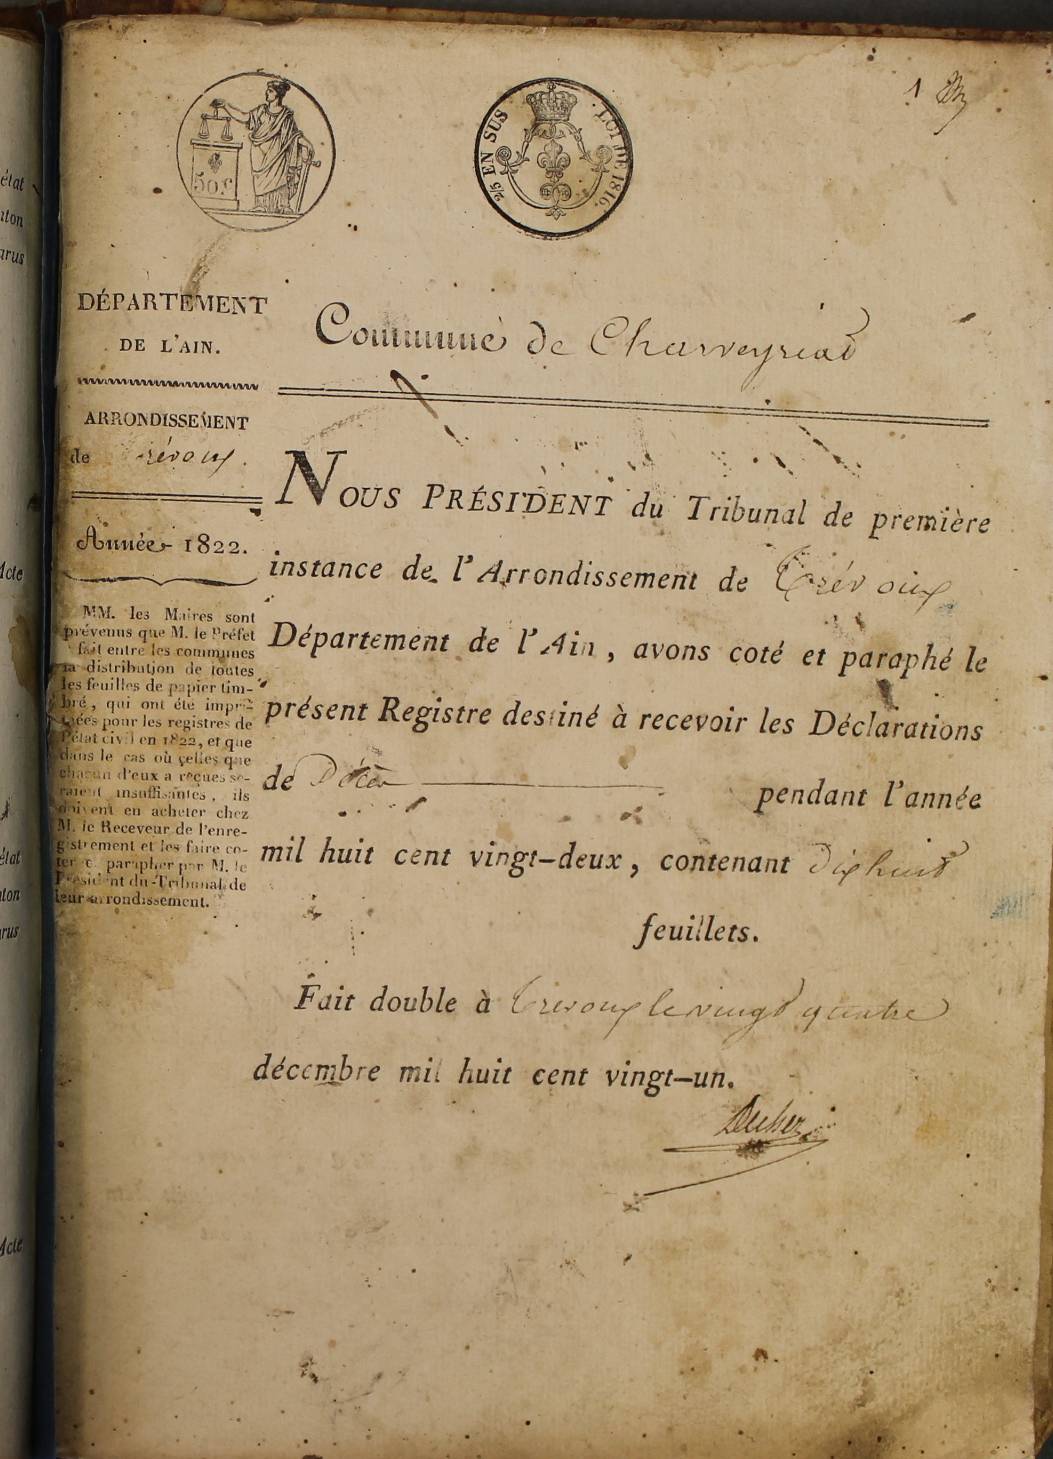 1
50 c.
2/5 EN SUS
LOI DE 1816.
DÉPARTEMENT
DE L'AIN.
ARRONDISSEMENT
de Trévoux.
Année 1822.
MM. les Maires sont
prévenus que M. le Préfet
fait entre les communes
la distribution de toutes
les feuilles de papier tim-
bré, qui ont été impri-
mées pour les registres de
l'état civil en 1822, et que
dans le cas où celles que
chacun d'eux a reçues se-
raient insuffisantes, ils
doivent en acheter chez
M. le Receveur de l'enre-
gistrement et les faire co-
ter et parapher par M. le
Président du Tribunal de
leur arrondissement.
Commune de Charveyriat
NOUS PRÉSIDENT du Tribunal de première
instance de l'Arrondissement de Trévoux
Département de l'Ain, avons coté et paraphé le
présent Registre destiné à recevoir les Déclarations
de Décès pendant l'année
mil huit cent vingt-deux, contenant Dix huit
feuillets.
Fait double à Trevoux le vingt quatre
décembre mil huit cent vingt-un.
état
Acte
état
Acte